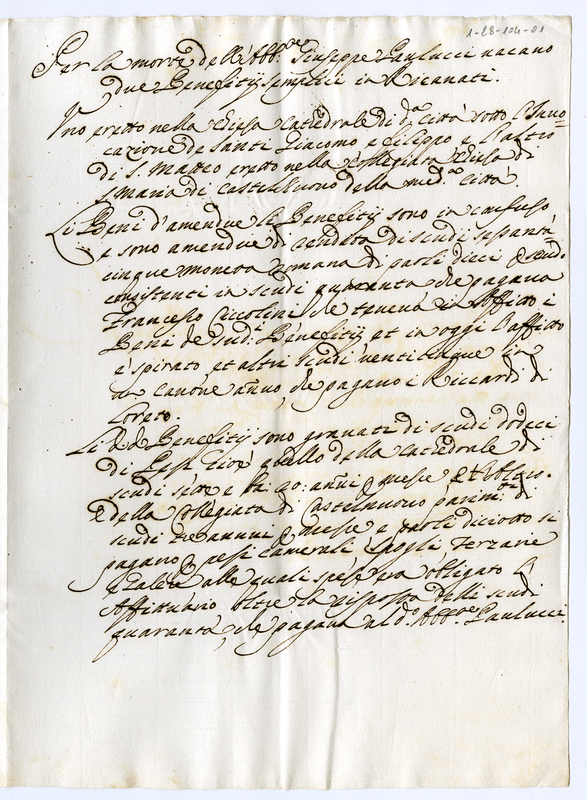 1-28-104-01
Per la morte dell'Abb.e Giuseppe Paulucci vacano
due Benefitij semplici in Ricanati.
Uno eretto nella Chiesa Cattedrale di d.a Città sotto l'Invo-
cazione de Santi Giacomo e Filippo e l'altro
di S. Matteo eretto nella Collegiata Chiesa di
S. Maria di Castelnuovo della med.a Città.
Li Beni d'amendue li Benefitij sono in confuso
e sono amendue di rendita di scudi sessanta
cinque moneta romana di paoli dieci p scudo
consistenti in scudi quaranta che pagava
Francesco Piccolini che teneva in Affitto i
Beni de sud.i Benefitij et in oggi l'affitto
è spirato, et altri scudi venticinque in
un Canone annuo, che pagano i Riccardi di
Loreto.
Li d.i Benefitij sono gravati di scudi dodeci
di Pesi cioè quello della Cattedrale di
scudi sette e
E della Collegiata di Castelnuovo
scudi tre annui p messe e paoli diciotto si
pagano p pesi camerali Spogli Terzarie
e Taleà alle quali spese era obligato l'
Affittuario oltre la risposta delli scudi
quaranta, che pagava al d.o Abb.e Paulucci.